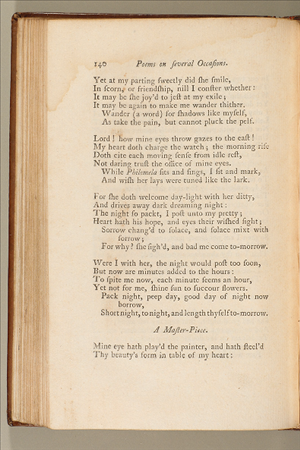 140 Poems on ſeveral Occaſions.
Yet at my parting ſweetly did ſhe ſmile,
In ſcorn, or friendſhip, nill I conſter whether:
It may be ſhe joy'd to jeſt at my exile;
It may be again to make me wander thither.
Wander (a word) for ſhadows like myſelf,
As take the pain, but cannot pluck the pelf.
Lord! how mine eyes throw gazes to the eaſt!
My heart doth charge the watch; the morning riſe
Doth cite each moving ſenſe from idle reſt,
Not daring truſt the office of mine eyes.
While Philomela ſits and ſings, I ſit and mark,
And wiſh her lays were tuned like the lark.
For ſhe doth welcome day-light with her ditty,
And drives away dark dreaming night:
The night ſo packt, I poſt unto my pretty;
Heart hath his hope, and eyes their wiſhed ſight;
Sorrow chang'd to ſolace, and ſolace mixt with
ſorrow;
For why? ſhe ſigh'd, and bad me come to-morrow.
Were I with her, the night would poſt too ſoon,
But now are minutes added to the hours:
To ſpite me now, each minute ſeems an hour,
Yet not for me, ſhine ſun to ſuccour flowers.
Pack night, peep day, good day of night now
borrow,
Short night, to night, and length thyſelf to-morrow.
A Maſter-Piece.
Mine eye hath play'd the painter, and hath ſteel'd
Thy beauty's form in table of my heart: